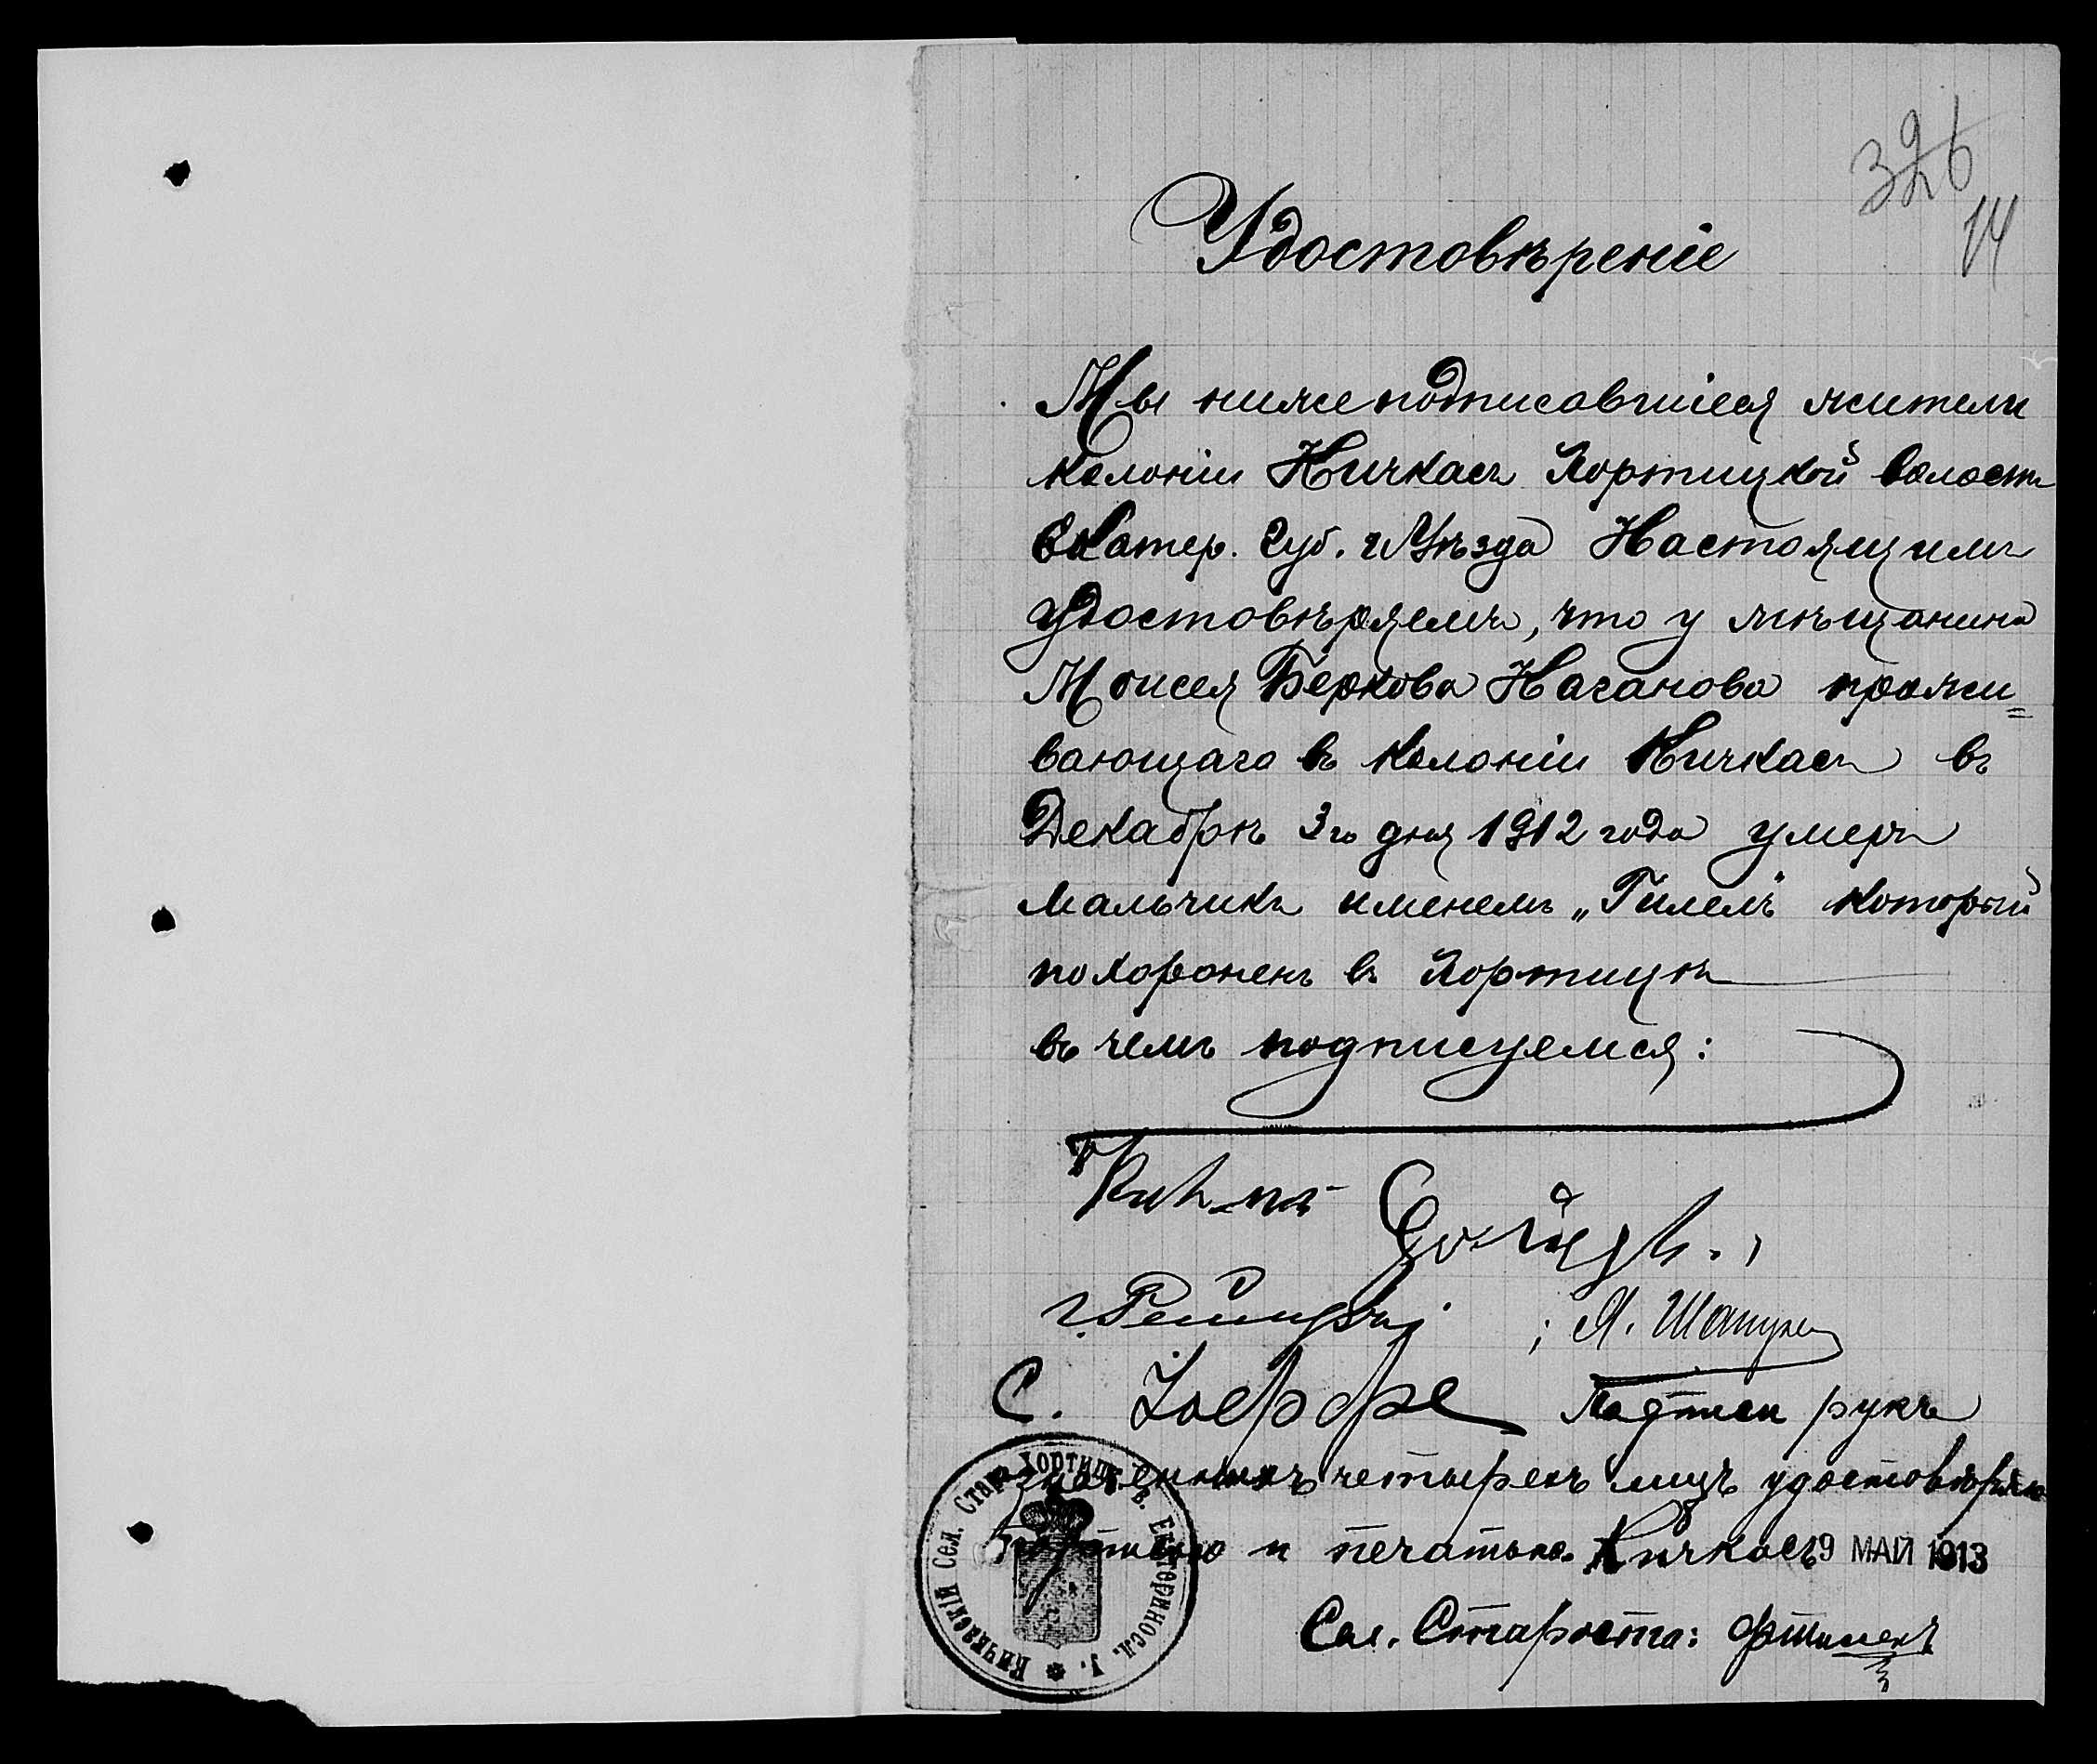 326
14
Удостовѣреніе
Мы нижеподписавшіеся жители
колоніи Кичкасъ Хортицкой волости
Екатер. Губ. и Уѣзда Настоящимъ
удостовѣряемъ, что у мѣщанина
Моисея Беркова Наганова прожи=
вающаго въ колоніи Кичкасъ въ
Декабрѣ 3го дня 1912 года умеръ
мальчикъ именемъ „Гилель" который
похороненъ въ Хортицѣ
въ чемъ подписуемся:
; Я.
С. Іоффе Подписи рукъ
четырехъ лицъ удостовѣряю
и печатью. Кичкасъ 19 МАЙ 1913
Сел. Староста:
Кичкаскій Сел. Стар. Хортицк. в. Екатериносл. у.